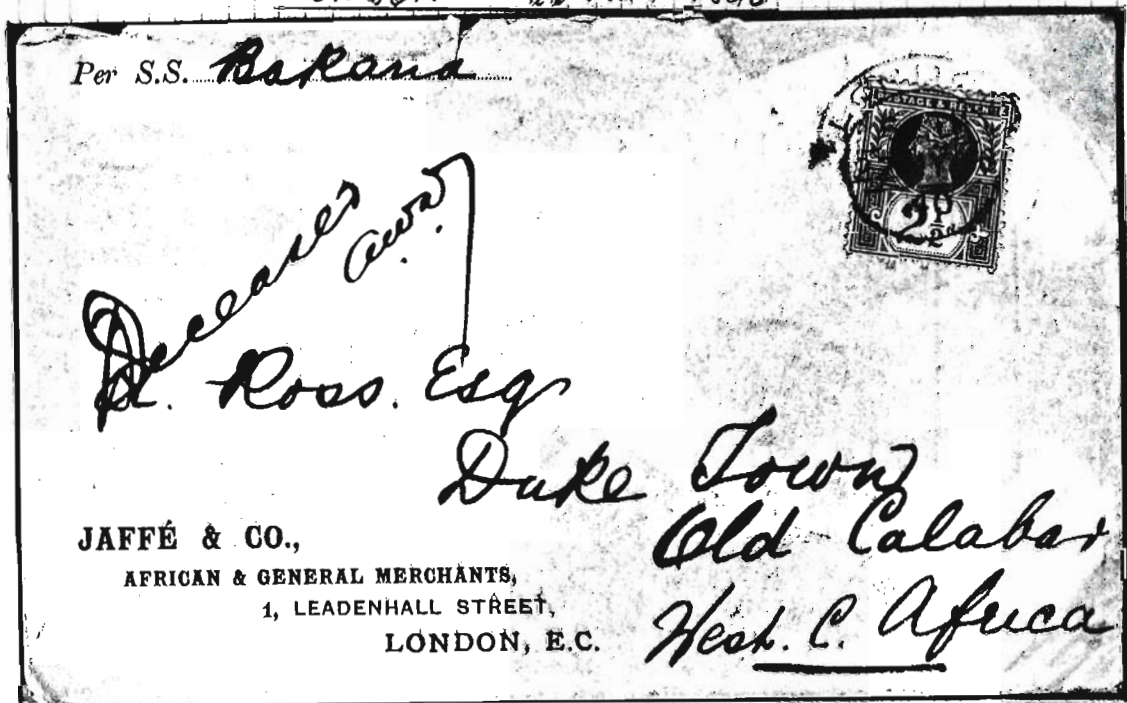 Per S.S. Bakana
POSTAGE & REVENUE
2½d
Deceased
away
Ross. Esq
Duke Town
Old Calabar
West. C. Africa
JAFFÉ & CO.,
AFRICAN & GENERAL MERCHANTS,
1, LEADENHALL STREET,
LONDON, E.C.